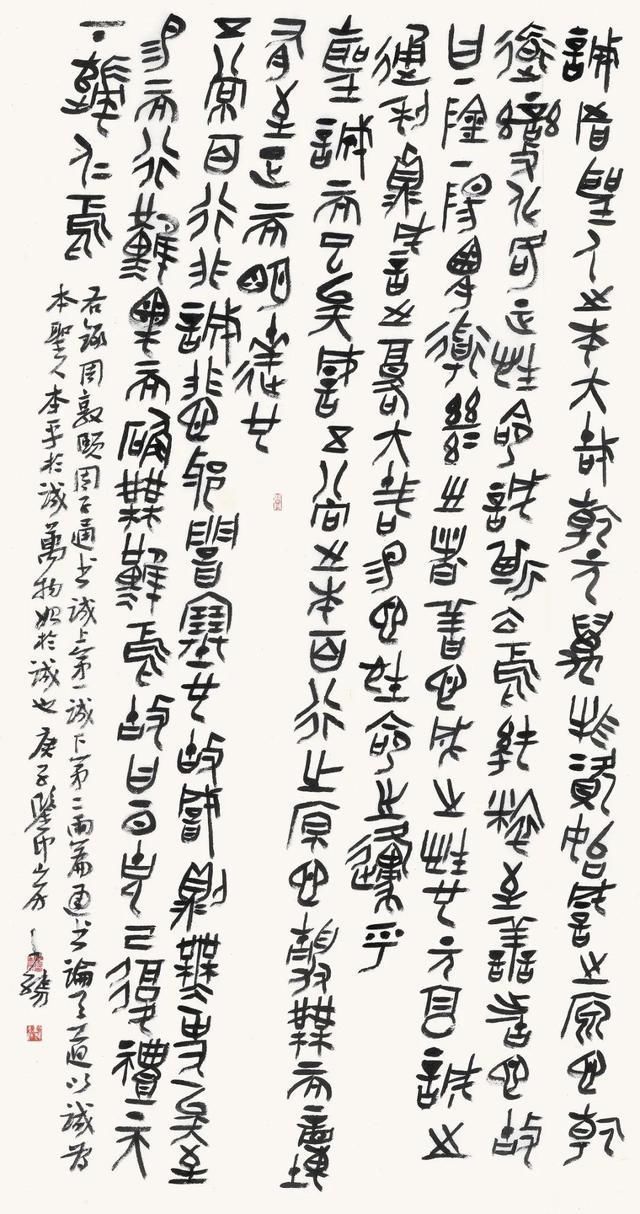 誠者聖人之本大哉乾元萬物資始誠之原也乾
道變化各正性命誠斯立焉純粹至善者也故
曰一陰一陽之謂道繼之者善也成之者性也元亨誠之
通利貞誠之復大哉易也性命之源乎
聖誠而已矣誠五常之本百行之原也靜無而動
有至正而明達也
五常百行非誠非也邪暗塞也故誠則無事矣至
易而行難果而確無難焉故曰一日克己復禮天
下歸仁焉
右錄周敦頤周子通書誠上第一誠下第二兩篇通書論天道以誠為
本聖人本乎於誠萬物始於誠也庚子鑒印山房